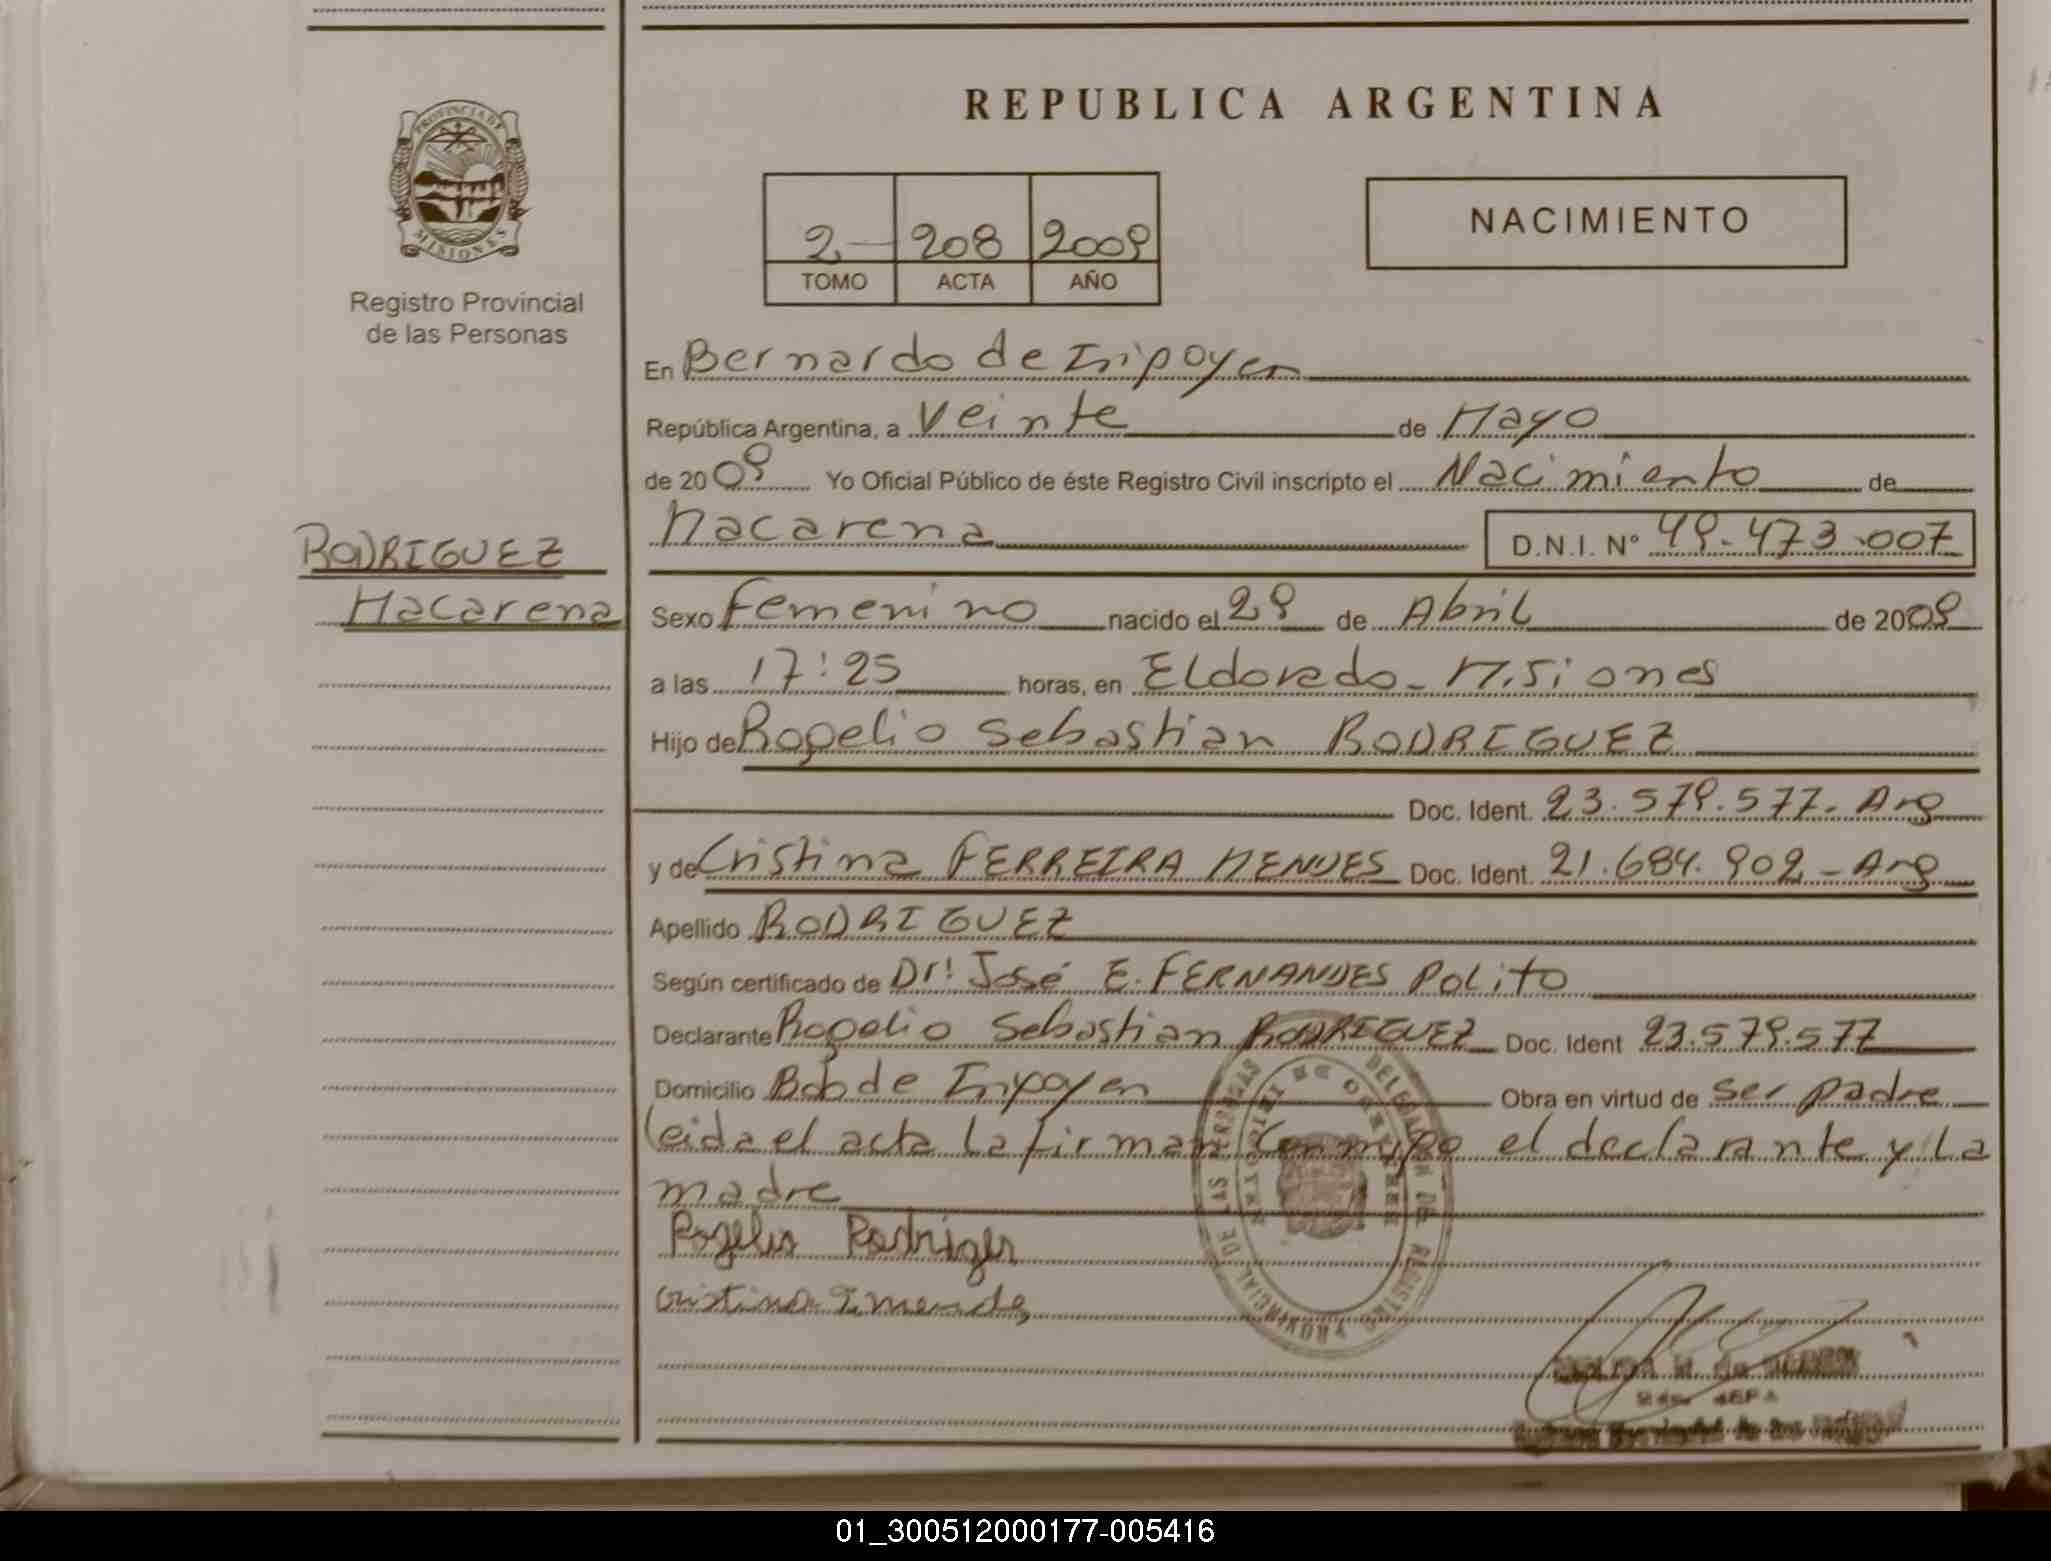 REPUBLICA ARGENTINA
PROVINCIA DE
MISIONES
Registro Provincial
de las Personas
2 208 2009
TOMO ACTA AÑO
NACIMIENTO
En Bernardo de Iripoyen
República Argentina, a Veinte de Mayo
de 2009 Yo Oficial Público de éste Registro Civil inscripto el Nacimiento de
Macarena D.N.I. N° 49.473.007
RODRIGUEZ
Macarena
Sexo Femenino nacido el 29 de Abril de 2009
a las 17:25 horas, en Eldorado - Misiones
Hijo de Rogelio Sebastian RODRIGUEZ
Doc. Ident. 23.579.577. Arg
y de Cristina FERREIRA MENDES Doc. Ident. 21.684.902 - Arg
Apellido RODRIGUEZ
Según certificado de Dr: José E. FERNANDES POLITO
Declarante Rogelio Sebastian RODRIGUEZ Doc. Ident 23.579.577
Domicilio Bdo de Iripoyen Obra en virtud de ser padre
Leida el acta la firman conmigo el declarante y la
madre
Rogelio Rodriguez
DELEGACION DEL REGISTRO PROVINCIAL DE LAS PERSONAS
01_300512000177-005416